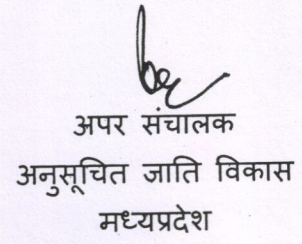 अपर संचालक
अनुसूचित जाति विकास
मध्यप्रदेश